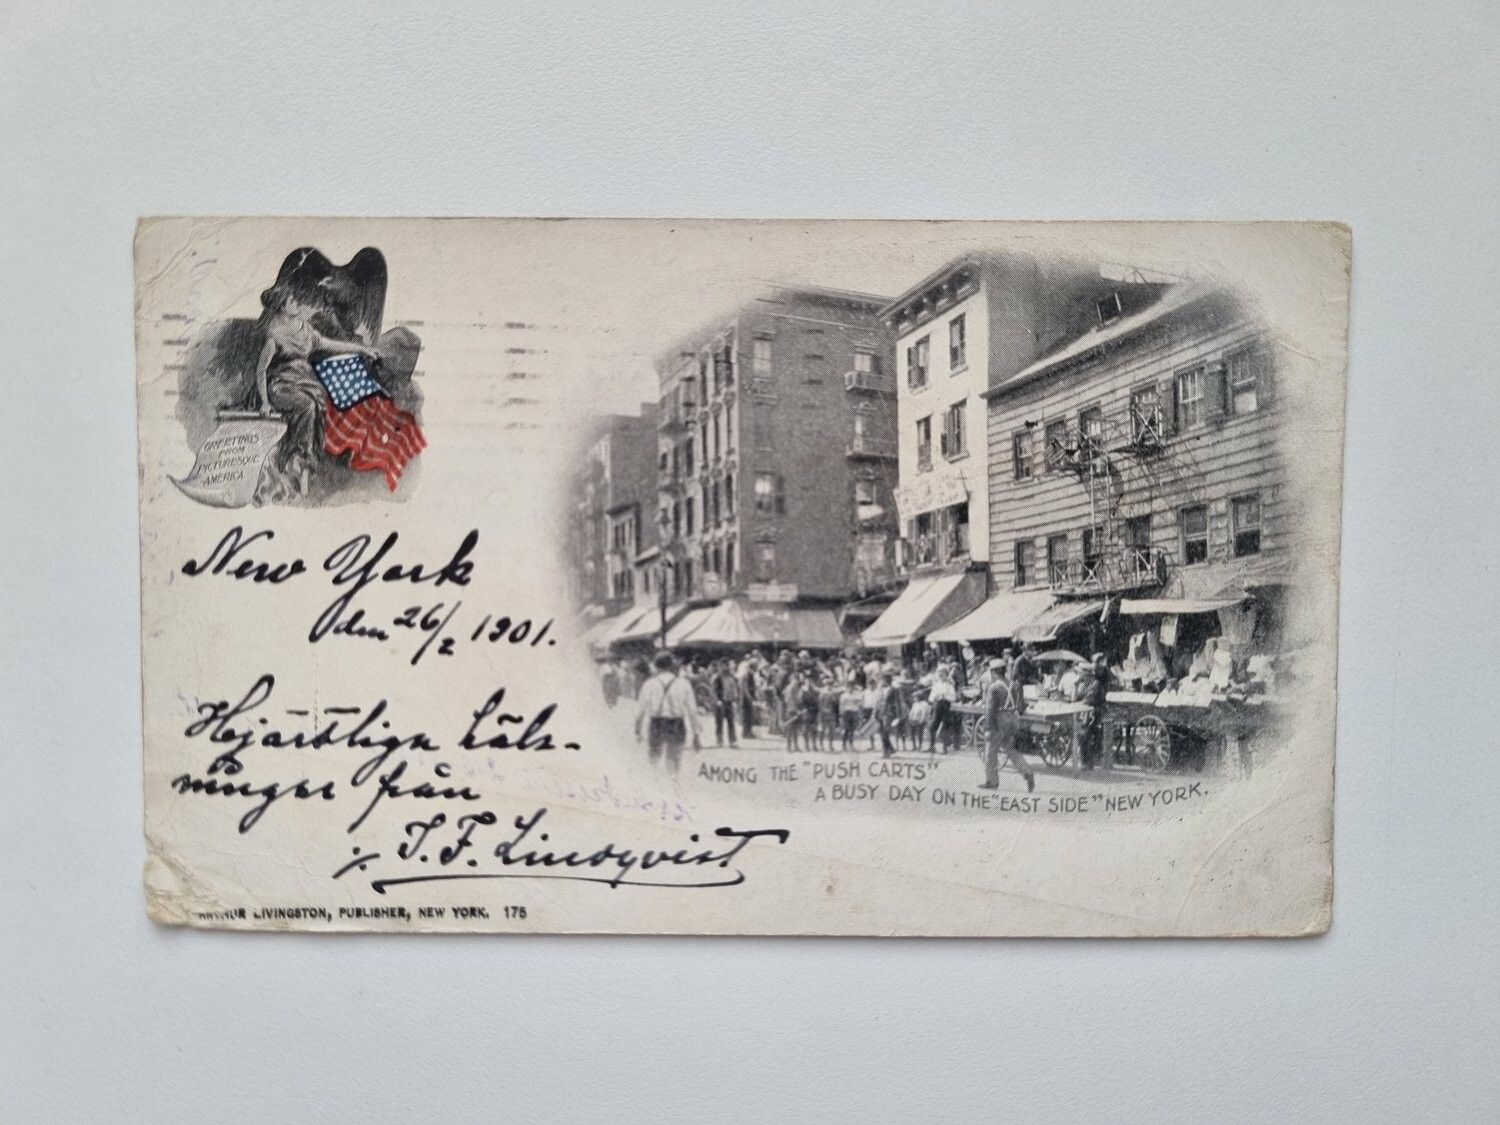 GREETINGS
FROM
PICTURESQUE
AMERICA
New York
den 26/2 1901.
Hjärtliga häls-
ningar från
J. F. Lindqvist
AMONG THE "PUSH CARTS"
A BUSY DAY ON THE "EAST SIDE" NEW YORK.
ARTHUR LIVINGSTON, PUBLISHER, NEW YORK. 175